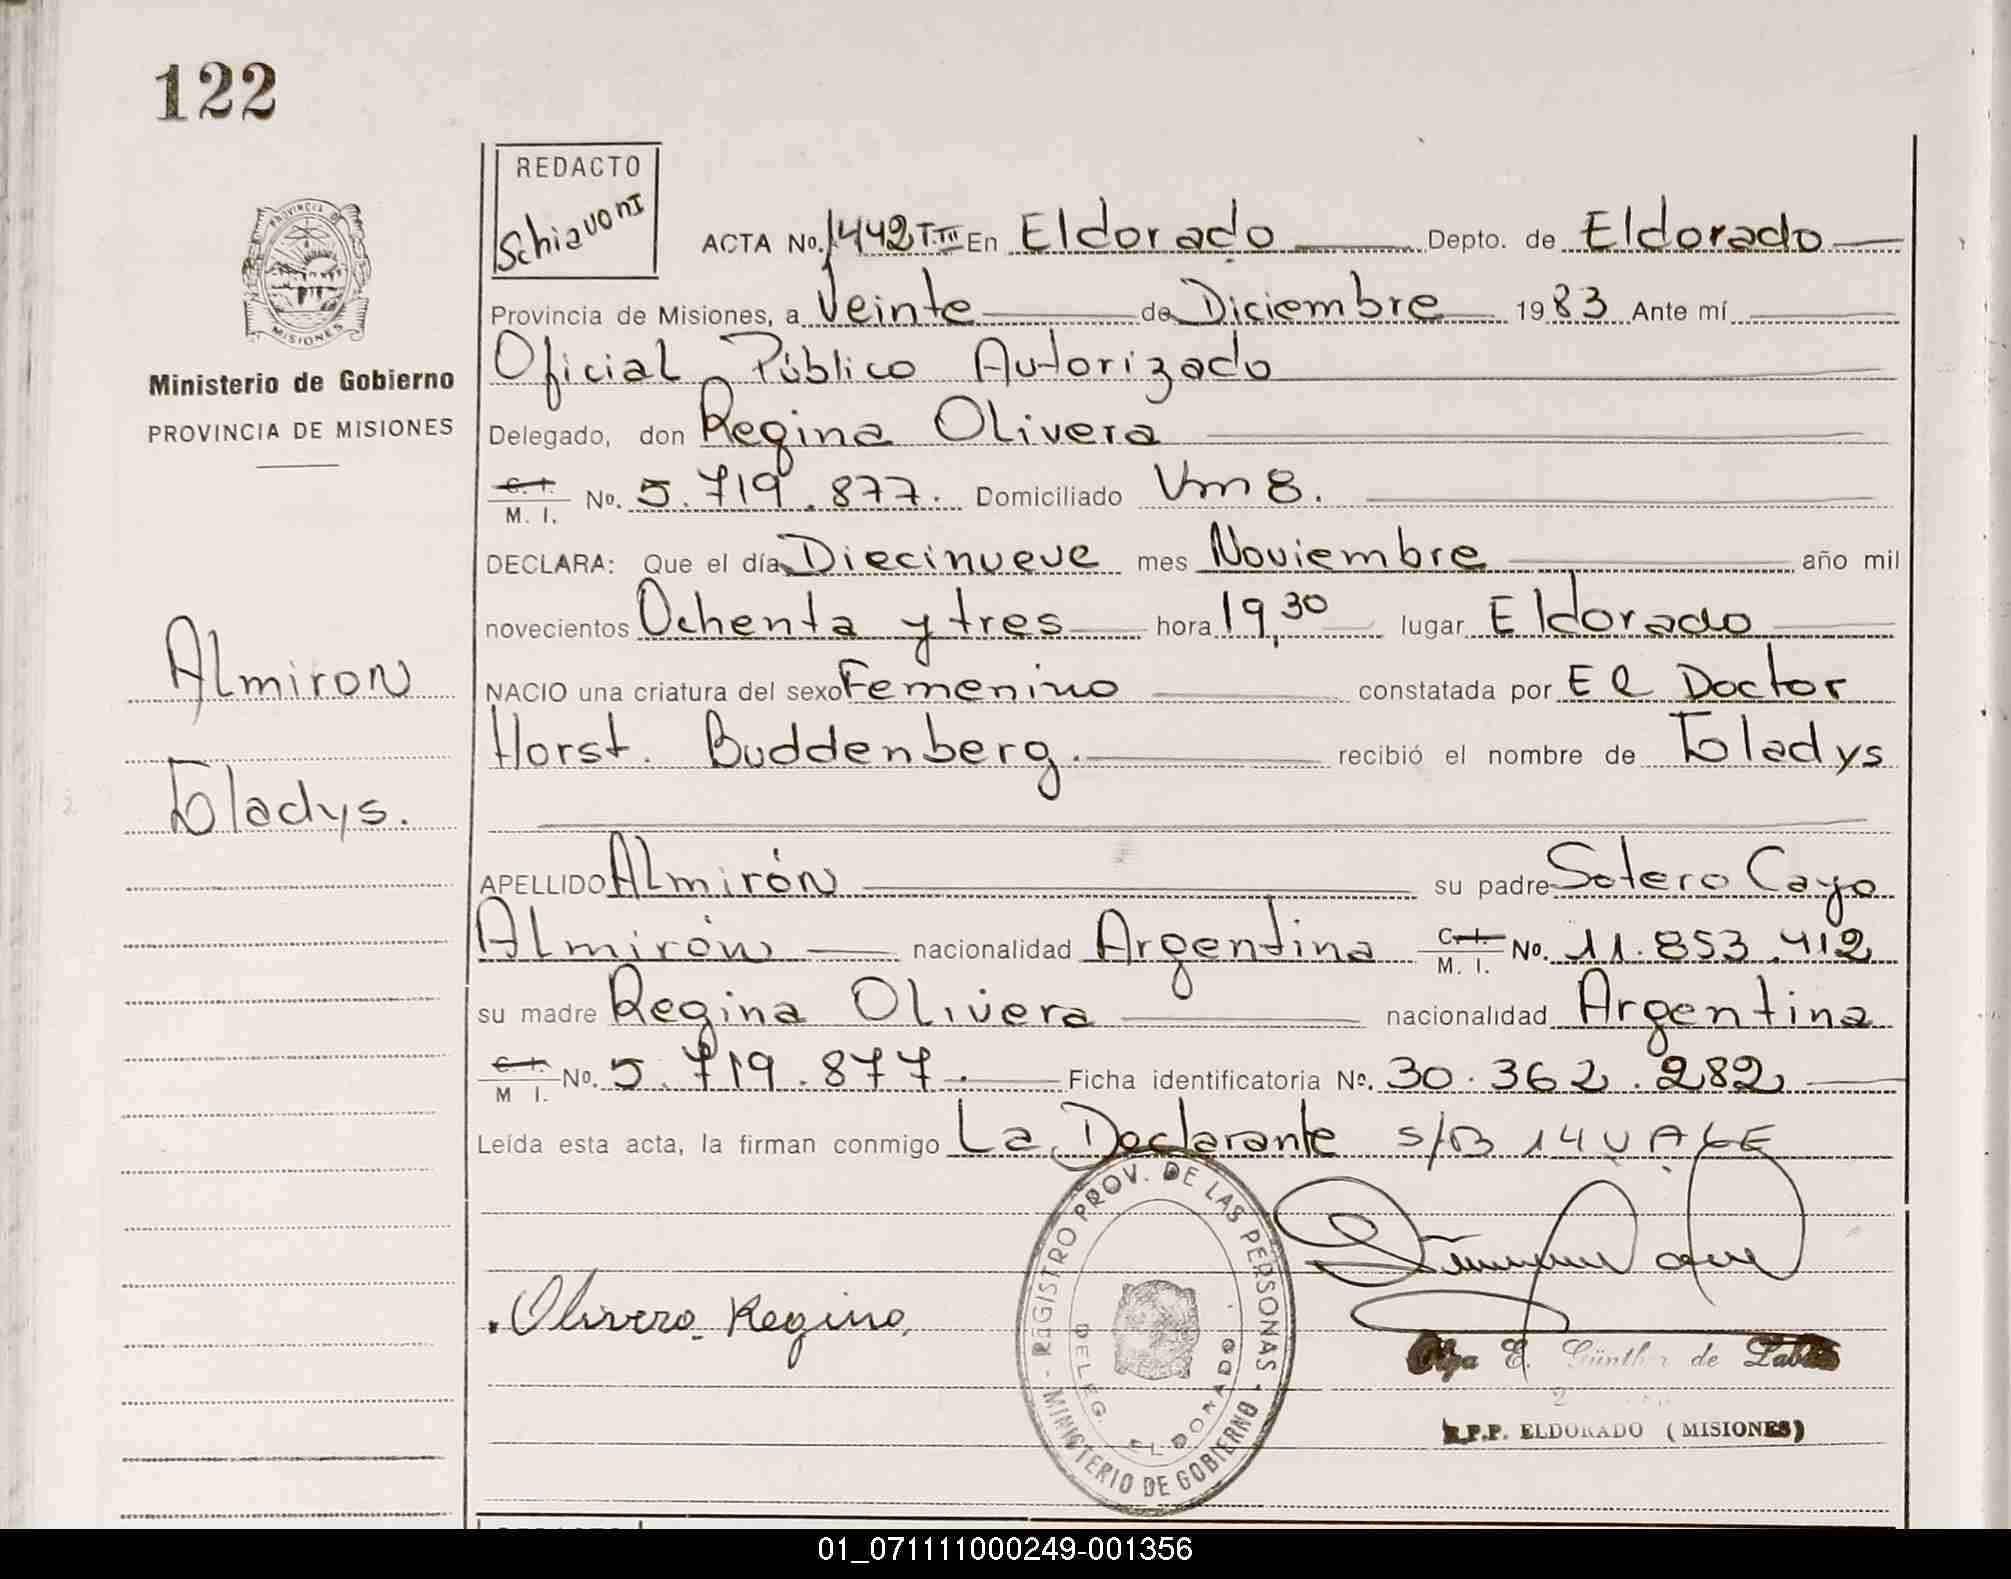 122
REDACTO
Schiavoni
PROVINCIA DE
MISIONES
Ministerio de Gobierno
PROVINCIA DE MISIONES
ACTA No. 1442 T.III En Eldorado Depto. de Eldorado
Provincia de Misiones, a Veinte de Diciembre 1983 Ante mí
Oficial Público Autorizado
Delegado, don Regina Olivera
C. I.
M. I. No. 5.719.877. Domiciliado Vm 8.
DECLARA: Que el día Diecinueve mes Noviembre año mil
novecientos Ochenta y tres hora 19,30 lugar Eldorado
Almiron
NACIO una criatura del sexo Femenino constatada por El Doctor
Horst. Buddenberg. recibió el nombre de Gladys
Gladys.
APELLIDO Almirón su padre Sotero Cayo
Almirón nacionalidad Argentina C. I. M. I. No. 11.853.412
su madre Regina Olivera nacionalidad Argentina
C. I.
M I. No. 5.719.877. Ficha identificatoria No. 30.362.282
Leída esta acta, la firman conmigo La Declarante S/B 14 VALE
REGISTRO PROV. DE LAS PERSONAS - MINISTERIO DE GOBIERNO -
DELEG. ELDORADO
.Olivera Regina,
Olga E. Günther de
R.P.P. ELDORADO (MISIONES)
01_071111000249-001356